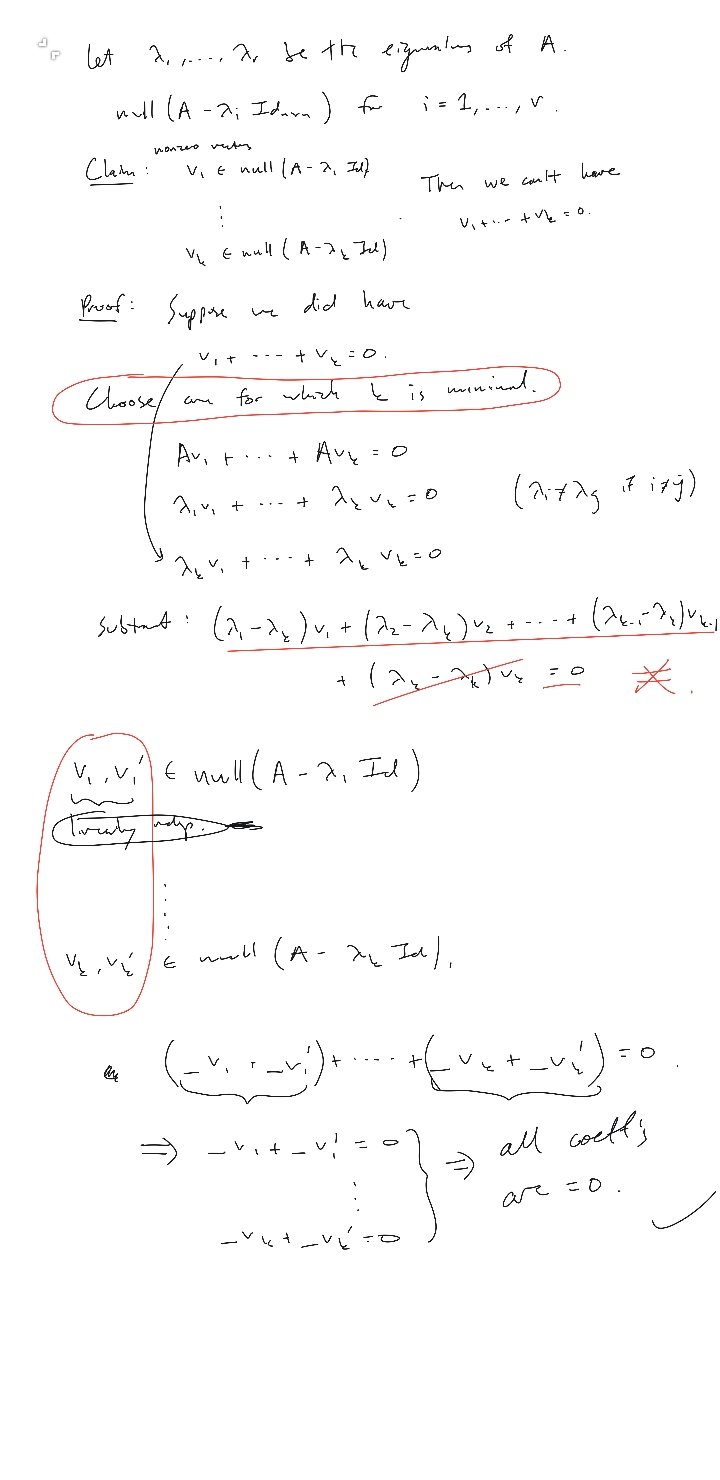 Let λ₁, ..., λᵣ be the eigenvalues of A.
null (A - λᵢ Idₙₓₙ) for i = 1, ..., r.
nonzero vectors
Claim: v₁ ∈ null (A - λ₁ Id) Then we can't have
⋮ v₁ + ... + vₖ = 0.
vₖ ∈ null (A - λₖ Id)
Proof: Suppose we did have
v₁ + ... + vₖ = 0.
Choose one for which k is minimal.
Av₁ + ... + Avₖ = 0
λ₁v₁ + ... + λₖvₖ = 0 (λᵢ ≠ λⱼ if i ≠ j)
λₖv₁ + ... + λₖvₖ = 0
Subtract: (λ₁ - λₖ)v₁ + (λ₂ - λₖ)v₂ + ... + (λₖ₋₁ - λₖ)vₖ₋₁
+ (λₖ - λₖ)vₖ = 0 ※.
v₁, v₁' ∈ null (A - λ₁ Id)
linearly indep.
⋮
vₖ, vₖ' ∈ null (A - λₖ Id).
(_v₁ + _v₁') + .... + (_vₖ + _vₖ') = 0.
⇒ _v₁ + _v₁' = 0 } ⇒ all coeff's
⋮ are = 0. ✓
_vₖ + _vₖ' = 0